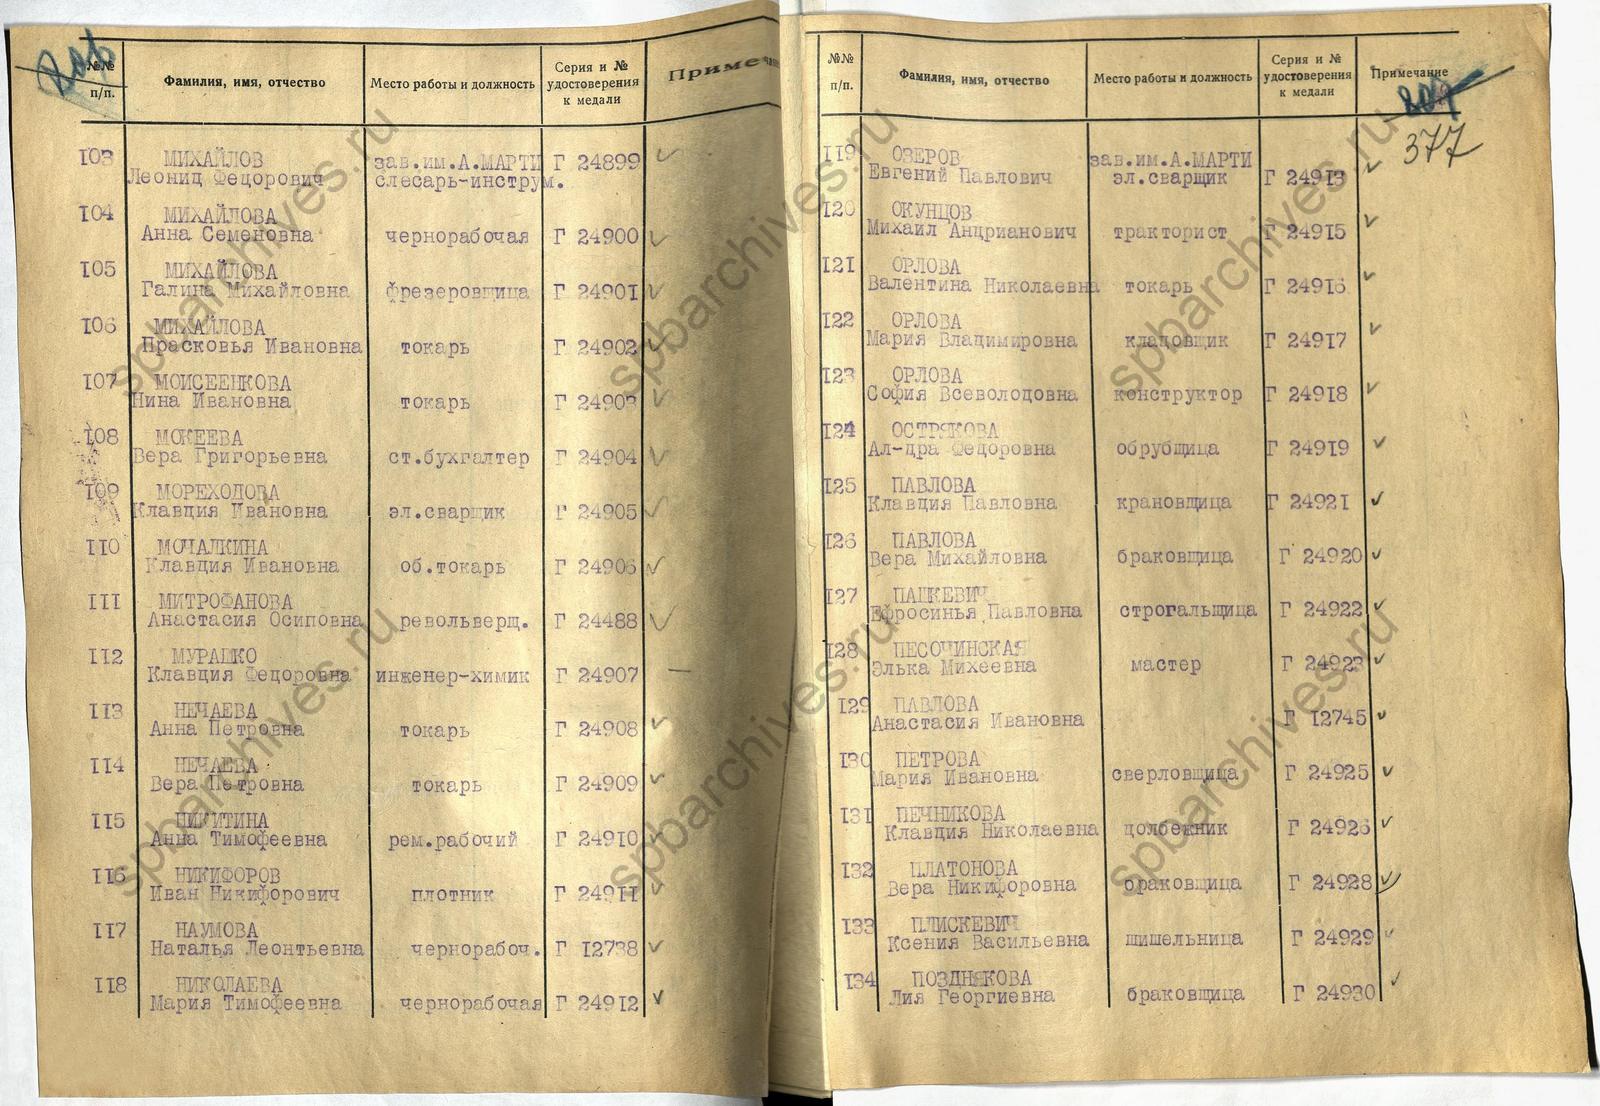 №№ п/п. Фамилия, имя, отчество Место работы и должность Серия и № удостоверения к медали Примеча
103 МИХАЙЛОВ зав.им.А.МАРТИ Г 24899
Леонид Федорович слесарь-инструм.
104 МИХАЙЛОВА
Анна Семеновна чернорабочая Г 24900
105 МИХАЙЛОВА
Галина Михайловна фрезеровщица Г 24901
106 МИХАЙЛОВА
Прасковья Ивановна токарь Г 24902
107 МОИСЕЕНКОВА
Нина Ивановна токарь Г 24903
108 МОКЕЕВА
Вера Григорьевна ст.бухгалтер Г 24904
109 МОРЕХОДОВА
Клавдия Ивановна эл.сварщик Г 24905
110 МОЧАЛКИНА
Клавдия Ивановна об.токарь Г 24906
111 МИТРОФАНОВА
Анастасия Осиповна револьверщ. Г 24488
112 МУРАШКО
Клавдия Федоровна инженер-химик Г 24907 —
113 НЕЧАЕВА
Анна Петровна токарь Г 24908
114 НЕЧАЕВА
Вера Петровна токарь Г 24909
115 НИКИТИНА
Анна Тимофеевна рем.рабочий Г 24910
116 НИКИФОРОВ
Иван Никифорович плотник Г 24911
117 НАУМОВА
Наталья Леонтьевна чернорабоч. Г 12738
118 НИКОЛАЕВА
Мария Тимофеевна чернорабочая Г 24912
№№ п/п. Фамилия, имя, отчество Место работы и должность Серия и № удостоверения к медали Примечание
377
119 ОЗЕРОВ зав.им.А.МАРТИ
Евгений Павлович эл.сварщик Г 24913
120 ОКУНЦОВ
Михаил Андрианович тракторист Г 24915
121 ОРЛОВА
Валентина Николаевна токарь Г 24916
122 ОРЛОВА
Мария Владимировна кладовщик Г 24917
123 ОРЛОВА
София Всеволодовна конструктор Г 24918
124 ОСТРЯКОВА
Ал-дра Федоровна обрубщица Г 24919
125 ПАВЛОВА
Клавдия Павловна крановщица Г 24921
126 ПАВЛОВА
Вера Михайловна браковщица Г 24920
127 ПАШКЕВИЧ
Ефросинья Павловна строгальщица Г 24922
128 ПЕСОЧИНСКАЯ
Элька Михеевна мастер Г 24923
129 ПАВЛОВА
Анастасия Ивановна Г 12745
130 ПЕТРОВА
Мария Ивановна сверловщица Г 24925
131 ПЕЧНИКОВА
Клавдия Николаевна долбежник Г 24926
132 ПЛАТОНОВА
Вера Никифоровна браковщица Г 24928
133 ПЛИСКЕВИЧ
Ксения Васильевна шишельница Г 24929
134 ПОЗДНЯКОВА
Лия Георгиевна браковщица Г 24930
spbarchives.ru
spbarchives.ru
spbarchives.ru
spbarchives.ru
spbarchives.ru
spbarchives.ru